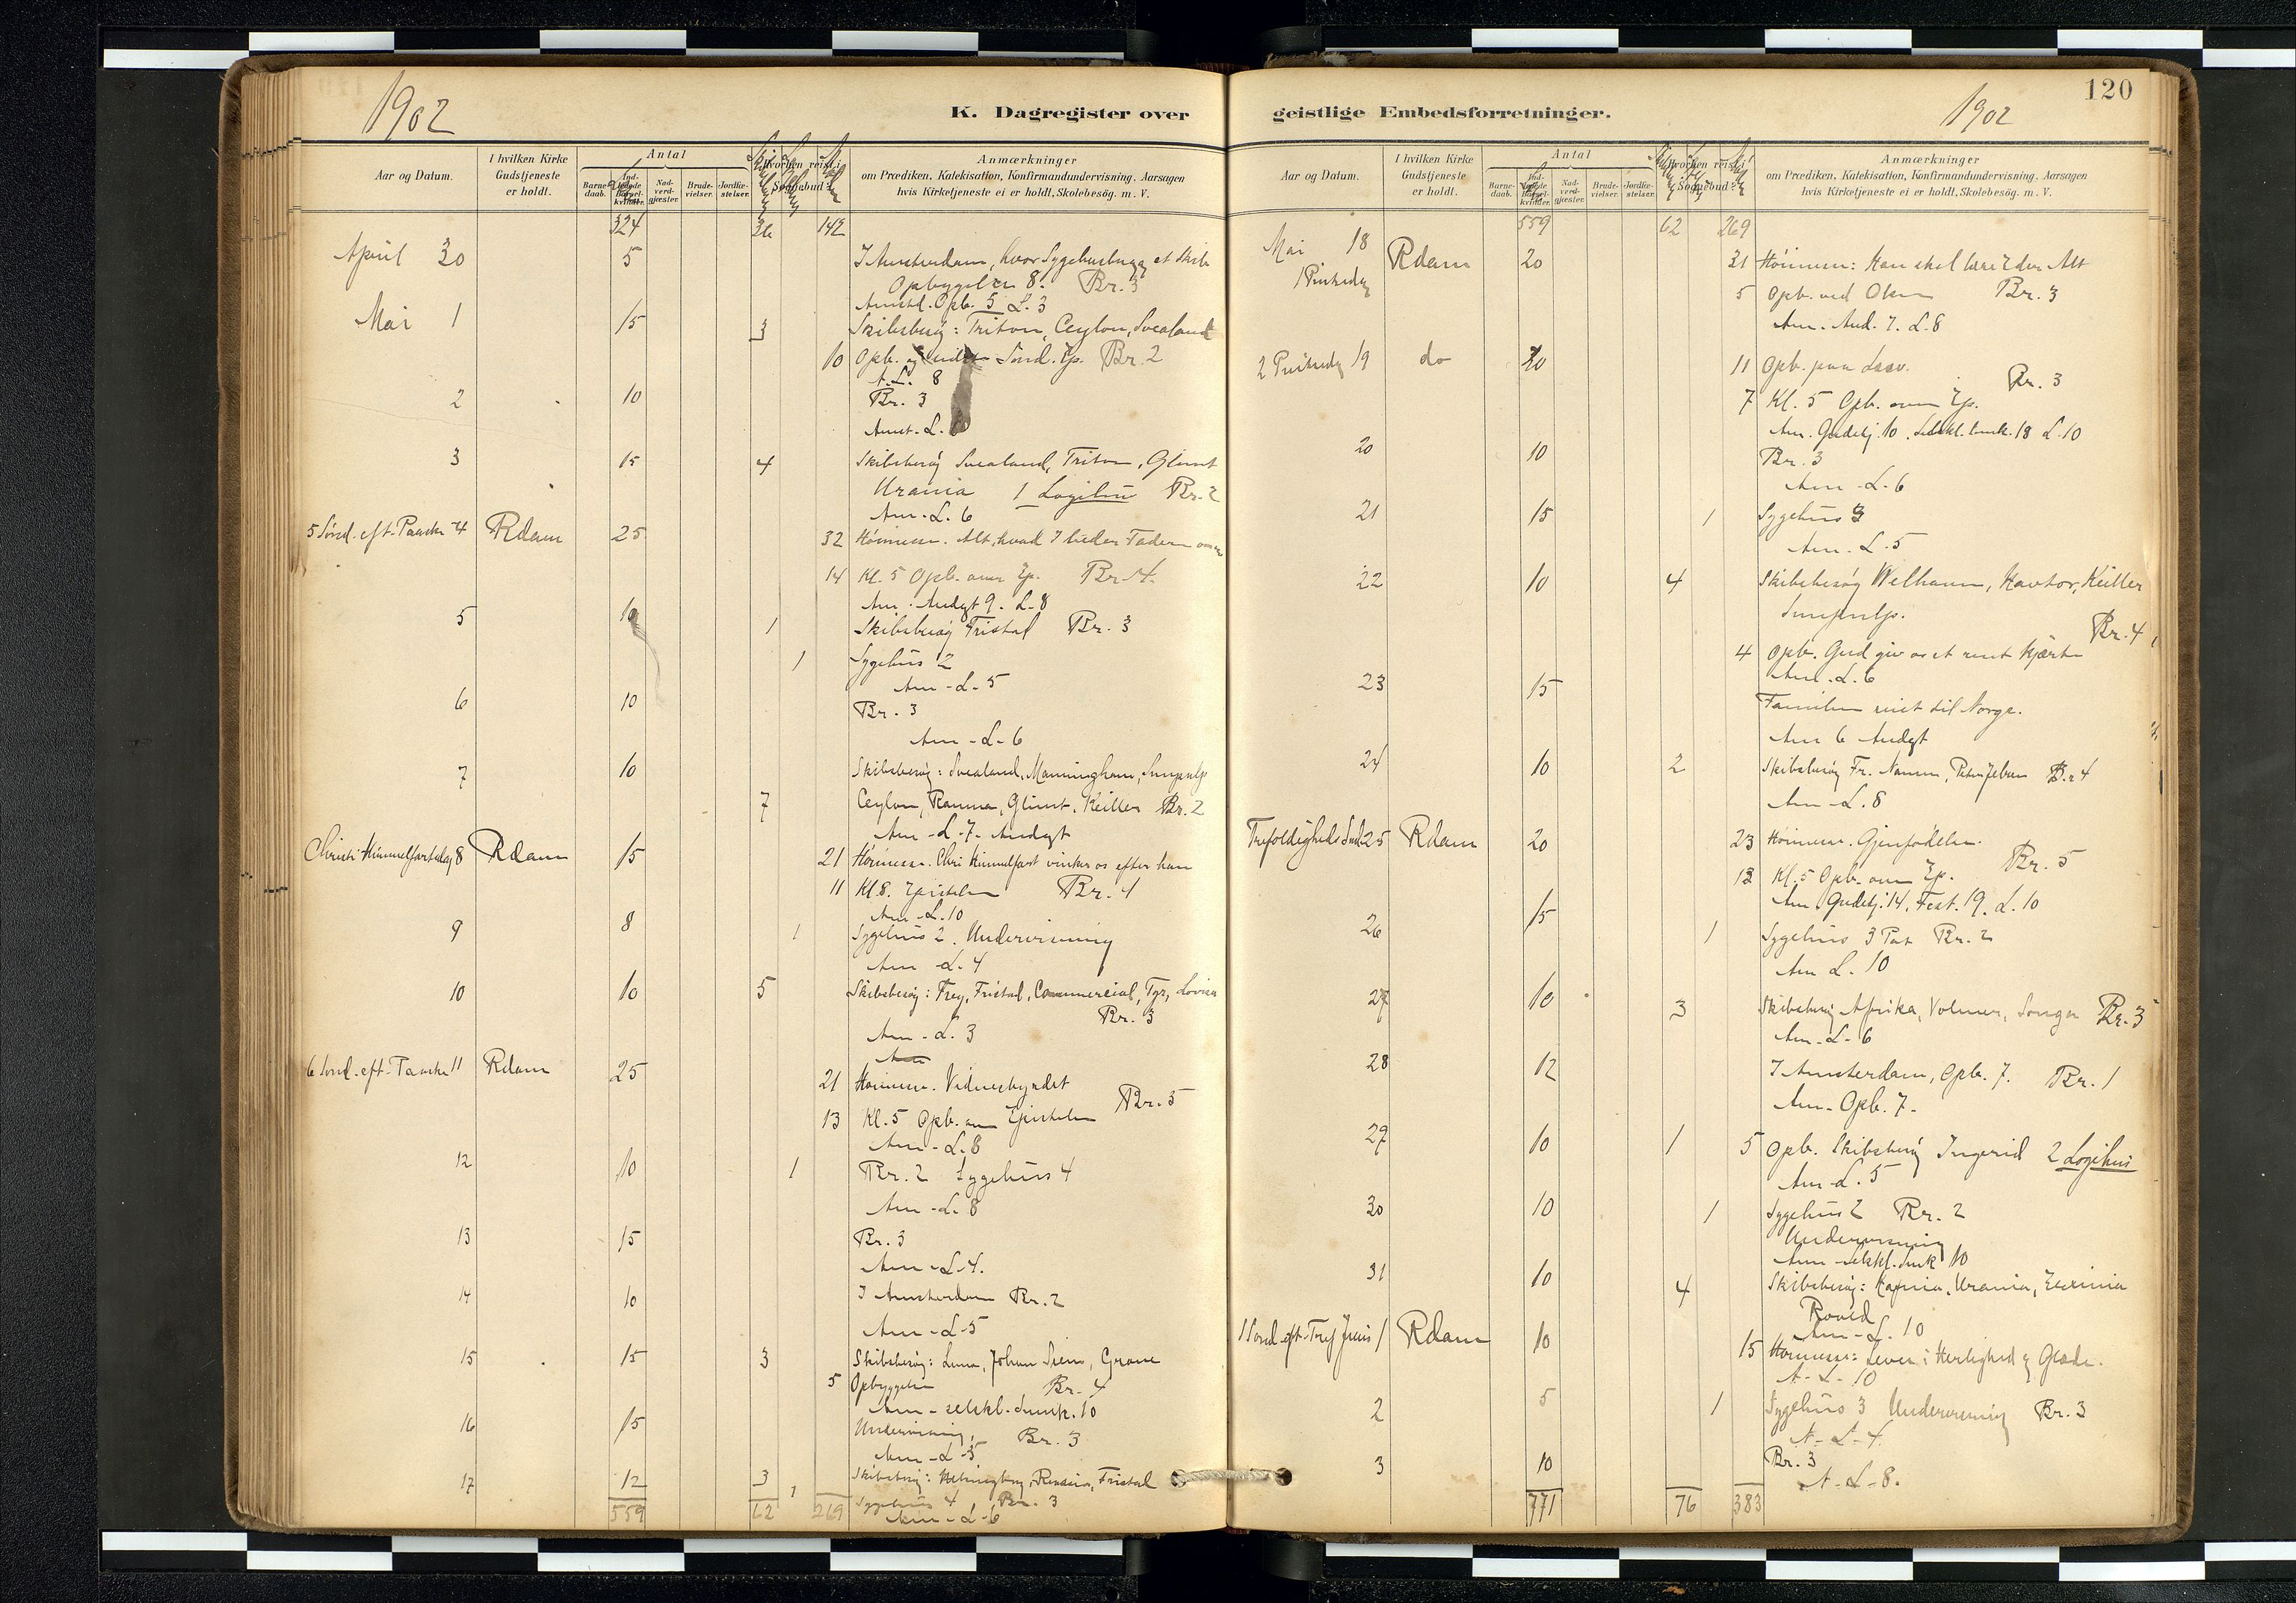 1902
K. Dagregister over
Aar og Datum.
I hvilken Kirke Gudstjeneste er holdt.
Antal
Barne-daab.
Ind-ledede Barsel-kvinder.
Nad-verd-gjæster.
Brude-vielser.
Jordfæ-stelser.
Hvorhen reist i Sognebud?
Anmærkninger
om Prædiken, Katekisation, Konfirmandundervisning, Aarsagen
hvis Kirketjeneste ei er holdt, Skolebesøg. m. V.
324 36 142
April 30 5 I Amsterdam, hvor Sygehusbesøg et Skib
Opbyggelse 8. Br. 3
Amstd. Opb. 5 L. 3
Mai 1 15 3 Skibsbesøg: Triton, Ceylon, Svealand
10 Opb. Br. 2
A. L. 8
2 10 Br. 3
Amst. L.
3 15 4 Skibsbesøg Svealand, Triton, Glimt
Urania 1 Logihus Br. 2
Am. L. 6
5 Sønd. eft. Paaske 4 Rdam 25 32 Høimesse. Alt, hvad I beder Faderen om
14 Kl. 5 Opb. over Ep. Br. 4.
Am. Andgt 9. L. 8
5 10 1 Skibsbesøg Fristad Br. 3
1 Sygehus 2
Am - L. 5
6 10 Br. 3
Am - L. 6
7 10 Skibsbesøg: Svealand, Manningham,
7 Ceylon, Ranma, Glimt, Keiller Br. 2
Am - L. 7. Andgt
Christi Himmelfartsdag 8 Rdam 15 21 Høimesse. Chri Himmelfart vinker os efter ham
11 Kl 8. Epistelen Br. 4
Am - L. 10
9 8 1 Sygehus 2. Undervisning
Am - L. 4
10 10 5 Skibsbesøg: Frey, Fristad, Commercial, Tyr, Lovisa
Br. 3
Am - L. 3
6 Sønd. eft. Paaske 11 Rdam 25 21 Høimesse. Vidnesbyrdet
Br. 5
13 Kl. 5 Opb. over Epistelen
Am - L. 8
12 10 1 Br. 2 Sygehus 4
Am - L. 8
13 15 Br. 3
Am - L. 4.
14 10 I Amsterdam Br. 2
Am - L. 5
15 15 3 Skibsbesøg: Luna, Johan Siem, Grane
5 Opbyggelse Br. 4
Am - selskl. Samk. 10
16 15 Undervisning, Br. 3
Am - L 5
17 12 3 1 Skibsbesøg: Fristad
Sygehus 4 Br. 3
559 62 269 Am - L 6
120
geistlige Embedsforretninger.
1902
Aar og Datum.
I hvilken Kirke Gudstjeneste er holdt.
Antal
Barne-daab.
Ind-ledede Barsel-kvinder.
Nad-verd-gjæster.
Brude-vielser.
Jordfæ-stelser.
Hvorhen reist i Sognebud?
Anmærkninger
om Prædiken, Katekisation, Konfirmandundervisning, Aarsagen
hvis Kirketjeneste ei er holdt, Skolebesøg. m. V.
559 62 269
Mai 18 Rdam 20 21 Høimesse: Han skal lære Eder Alt
1 Pintsedag 5 Opb. ved Br. 3
Am. And. 7. L. 8
2 Pintsedag 19 do 20 11 Opb. paa Br. 3
7 Kl. 5 Opb. over Ep.
Am. Gudstj. 10. Selskl. Samk. 18 L. 10
20 10 Br. 3
Am - L. 6
21 15 1 Sygehus 3
Am - L. 5
22 10 4 Skibsbesøg Welhaven, Havtor, Keiller
Br. 4
4 Opb. Gud giv os et rent Hjærte
Am - L. 6
23 15 Familien reist til Norge.
Am 6 Andgt
24 10 2 Skibsbesøg Fr. Nansen, Peter Jebsen Br. 4
Am - L. 8
Trefoldigheds Sønd. 25 Rdam 20 23 Høimesse. Gjenfødelse.
13 Kl. 5 Opb. over Ep. Br. 5
Am. Gudstj. 14. Fest. 19. L. 10
26 15 1 Sygehus 3 Pat Br. 2
Am L. 10
27 10 3 Skibsbesøg Afrika, Volmer, Songa Br. 3
Am - L. 6
28 12 I Amsterdam, Opb. 7. Br. 1
Am - Opb. 7.
29 10 1 5 Opb. Skibsbesøg Ingerid 2 Logihus
Am - L. 5
30 10 1 Sygehus 2 Br. 2
Undervisning
Am - selskl. Smk 10
31 10 4 Skibsbesøg: Urania, Euxinia
Roald
Am - L. 10
1 Sønd. eft. Tref Juni 1 Rdam 10 15 Høimesse: Lever i Herlighed og Glæde.
A - L - 10
2 5 1 Sygehus 3 Undervisning Br. 3
A - L - 4.
3 10 Br. 3
A - L - 8.
771 76 383